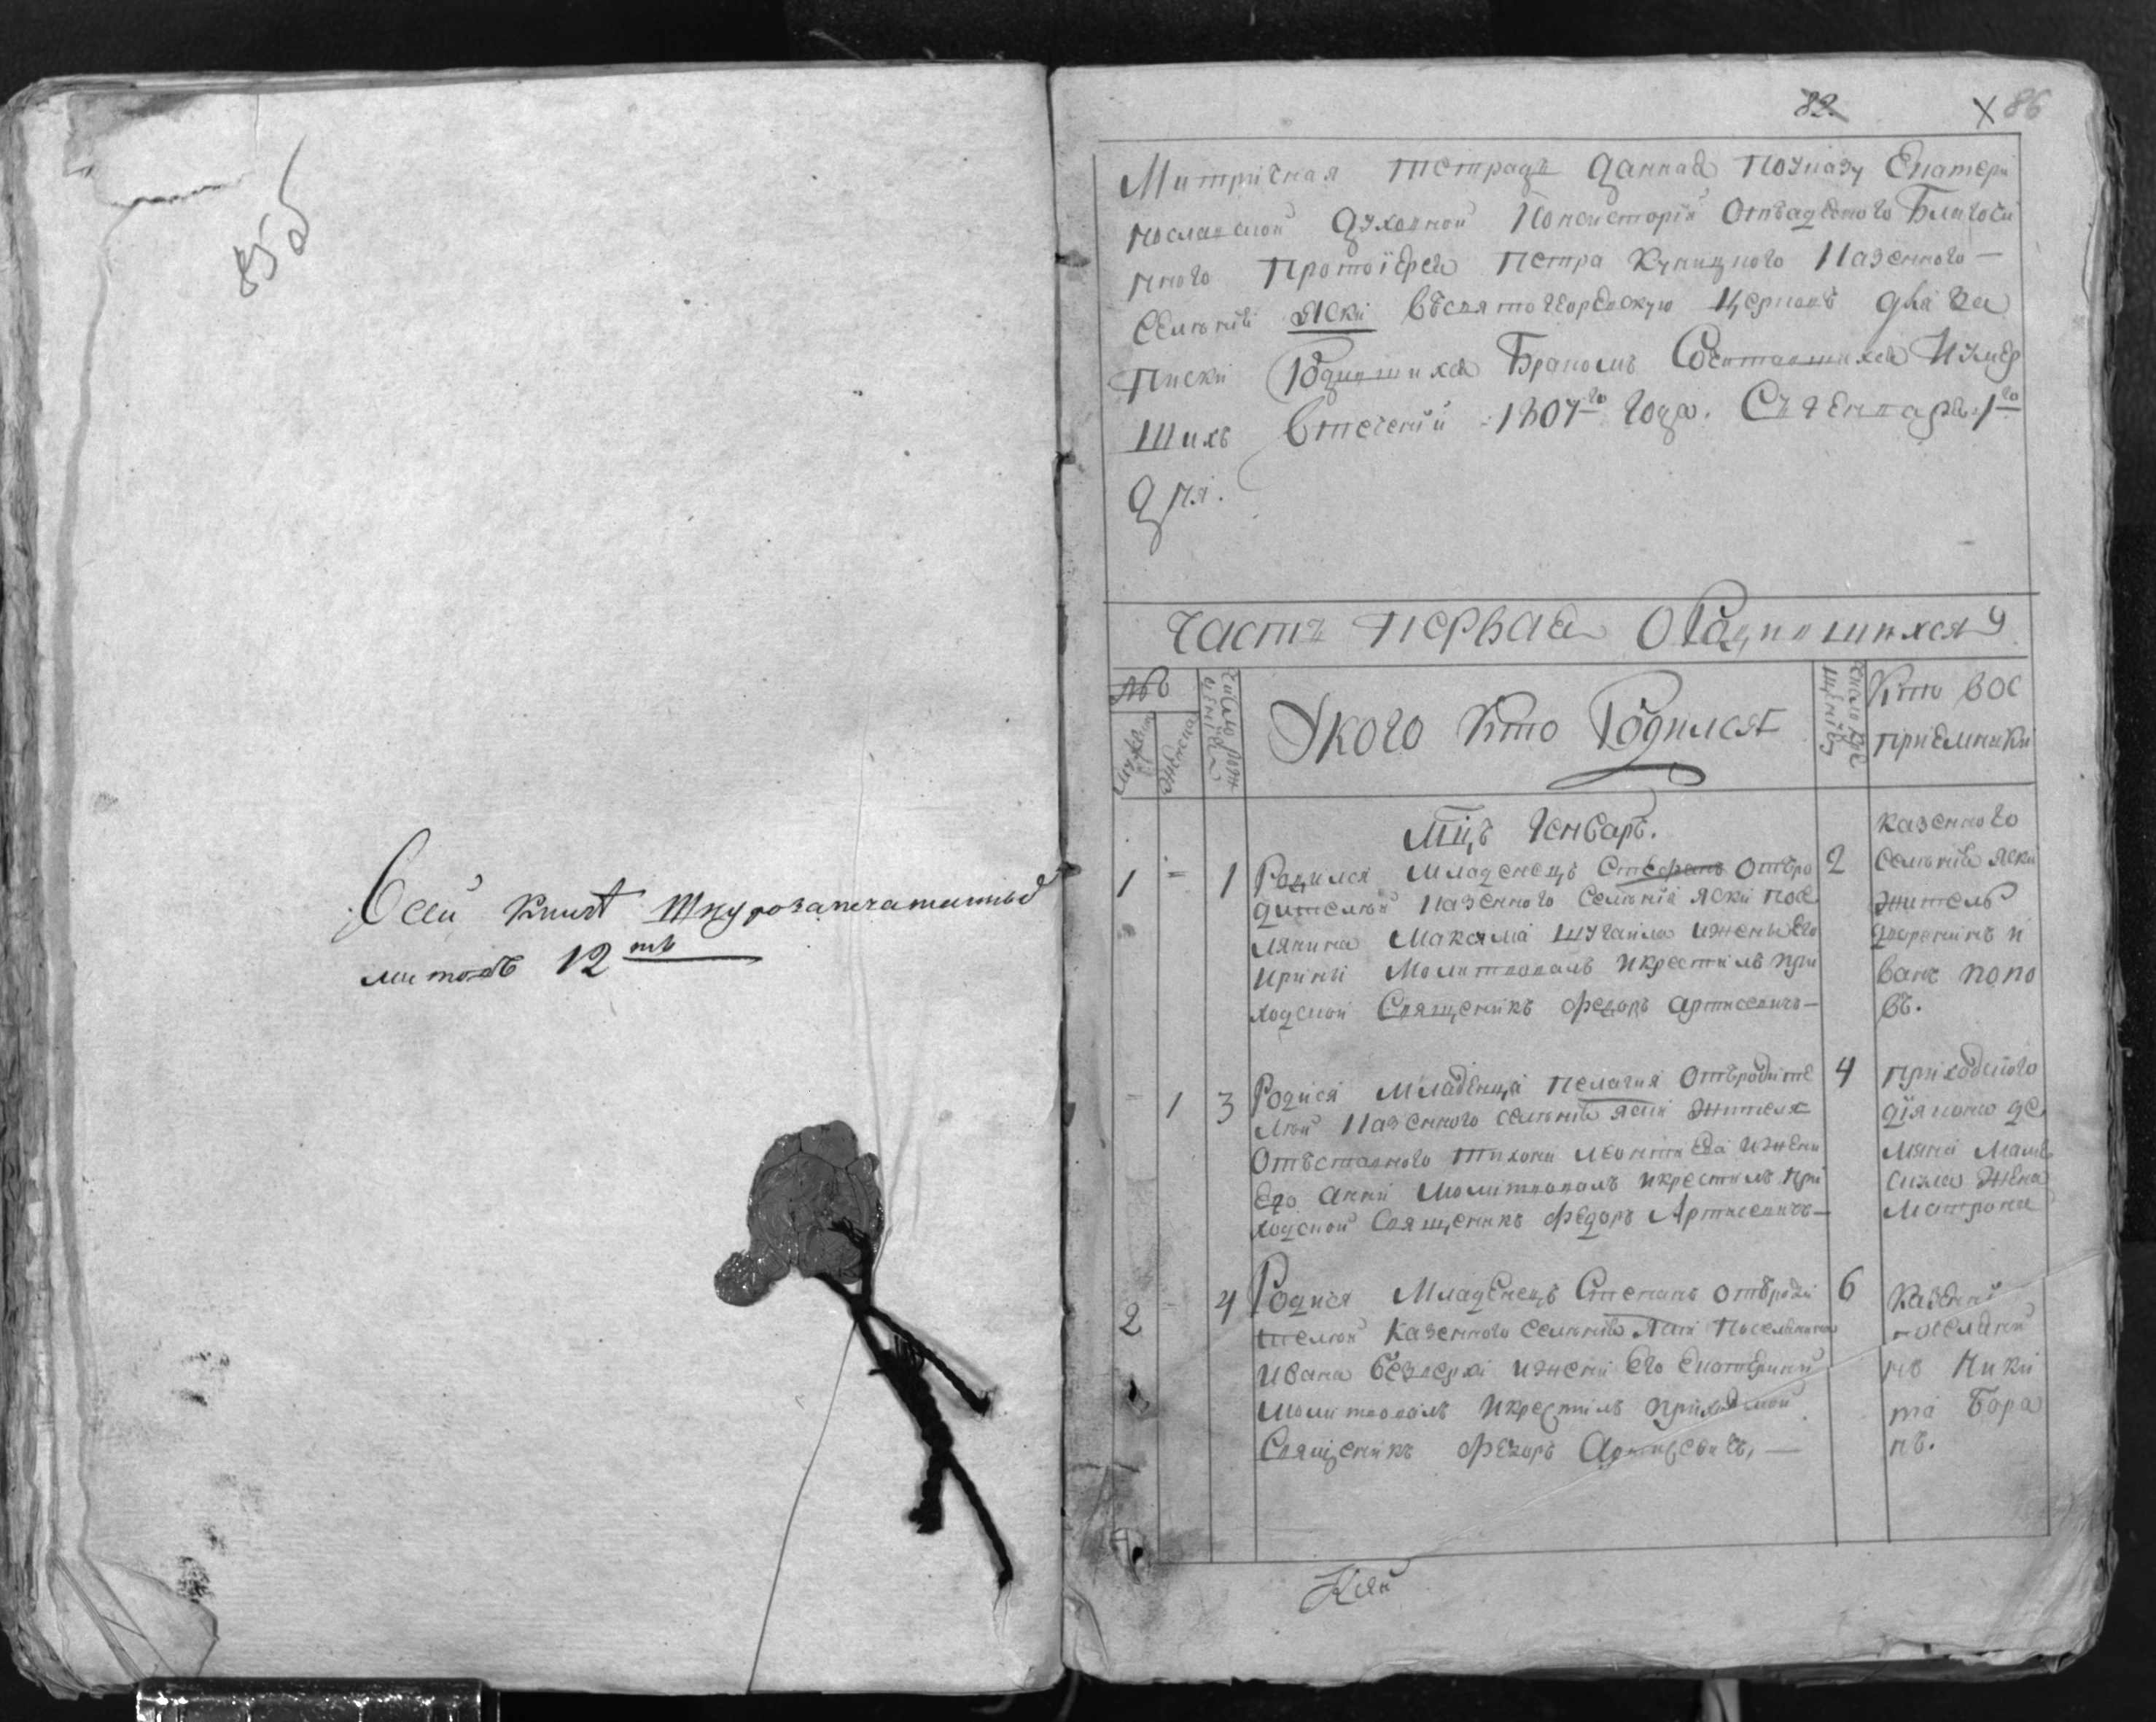 85 об
Всей книге шнурозапечатанныхъ
листовъ 12ть
82
х 86
Митричная тетрадь данная поуказу Екатери
нославской духовной Консисторіи Отъ Благочи
нного Протоіерея Петра Куницкого Казенного —
Селенія Яски въ Святогеоргіевскую Церковь для за
писки Родившихся Бракомъ Сочетавшихся и умер
шихъ Втеченіи 1807го года. Съ Генваря 1го
дня.
Часть первая О Родившихся
№ъ
Мужеска
Женска
Число рожденія
У кого Кто Родился
Число крещенія
Кто вос
пріемники
Мцъ Генварь.
1 - 1 Родился Младенецъ Стефанъ Отъ ро
дителей Казенного Селенія Яски посе
лянина Максима Шугайла и жены его
Ирины Молитвовалъ и крестилъ при
ходской Священикъ Федоръ Артисевичъ —
2
казенного
Селенія Яски
житель
дворенинъ И
ванъ Попо
въ.
- 1 3 Родися Младенца Пелагия Отъ родите
лей Казенного селенія Яски жителя
Отъставного Тихона Леонтиева и жени
Его Анни Молитвовалъ и крестилъ при
ходской Священикъ Федоръ Артисевичъ —
4
приходского
діякона Де
мяна
жена
Матрона
2 - 4 Родися Младенецъ Степанъ Отъ роди
телей Казенного селенія Яски Поселянина
Ивана и жени Его Екатерини
Молитвовалъ и крестилъ приходской
Священикъ Федоръ Артисевичъ. —
6
Казений
поселяни
нъ Ники
та Бара
нъ.